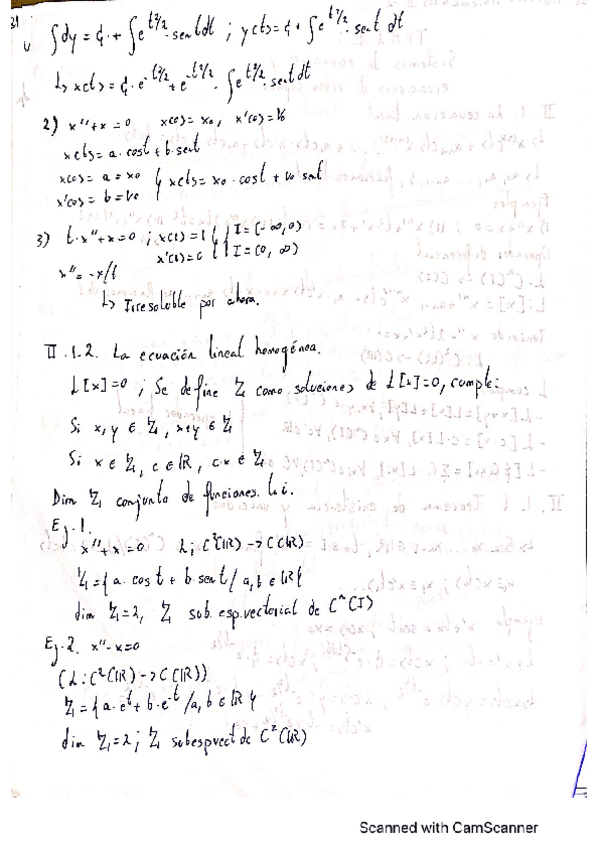 ∫dy = C₁ + ∫e^{t²/2}·sen t dt ; y(t) = C₁ + ∫e^{t²/2}·sen t dt
↳ x(t) = C₁·e^{-t²/2} + e^{-t²/2}·∫e^{t²/2}·sen t dt
2) x''+x=0 x(0)=x₀, x'(0)=V₀
x(t)= a·cos t + b·sen t
x(0)= a = x₀
x'(0)= b = V₀ } x(t)= x₀·cos t + V₀ sen t
3) t·x''+x=0 ; x(1)=1 } { I=(-∞,0)
x'(1)=0 } { I=(0,∞)
x''=-x/t
↳ Irresoluble por ahora.
II.1.2. La ecuación lineal homogénea.
L[x]=0 ; Se define Z como soluciones de L[x]=0, cumple:
Si x,y ∈ Z, x+y ∈ Z
Si x ∈ Z, c ∈ ℝ, c·x ∈ Z
Dim Z conjunto de funciones l.i.
Ej.1.
x''+x=0 L: C²(ℝ)->C(ℝ)
Z={a·cos t + b sen t / a,b ∈ ℝ}
dim Z=2, Z sub.esp.vectorial de Cⁿ(I)
Ej.2. x''-x=0
(L: C²(ℝ)->C(ℝ))
Z={a·e^t + b·e^{-t} / a,b ∈ ℝ}
dim Z=2; Z subespvect de C²(ℝ)
Scanned with CamScanner